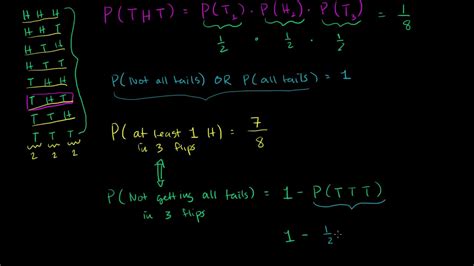 H H H
H H T
H T H
H T T
T H H
T H T
T T H
T T T
2 2 2
P(THT) = P(T₁) · P(H₂) · P(T₃) = 1/8
1/2 · 1/2 · 1/2
P(Not all tails) OR P(all tails) = 1
P(at least 1 H) = 7/8
in 3 flips
P(Not getting all tails) = 1 - P(TTT)
in 3 flips
1 - 1/2